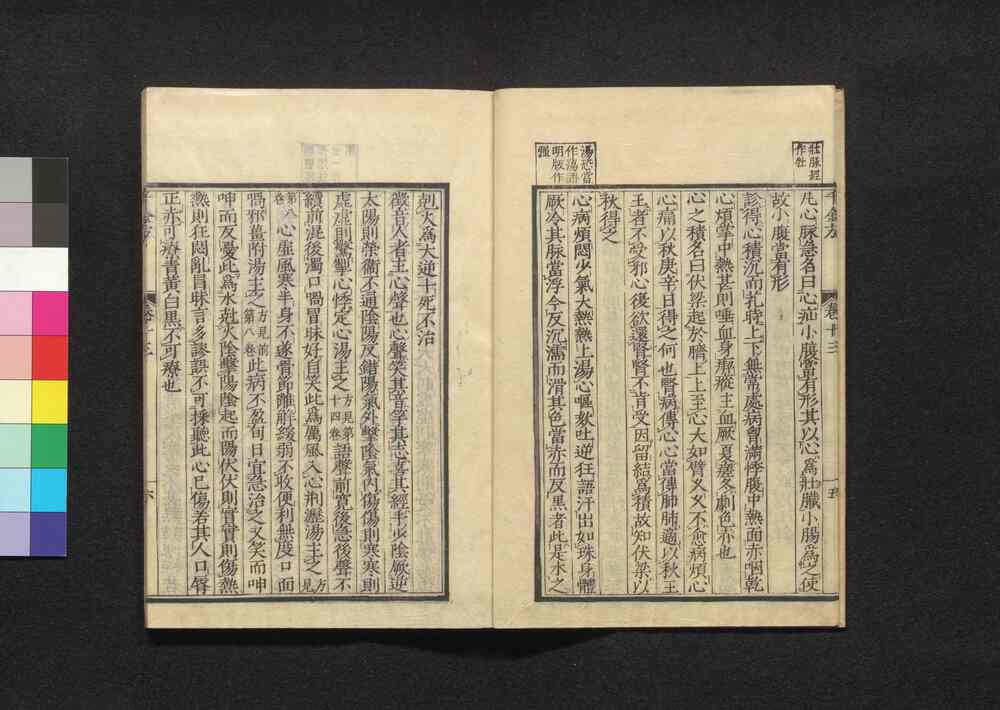 牡脉經
作牡
凡心脉急名曰心疝小腹當有形其以心為牡臟小腸為之使
故小腹當有形
診得心積沉而芤時上下無常處病胷滿悸腹中熱面赤咽乾
心煩掌中熱甚則唾血身瘈瘲主血厥夏瘥冬劇色赤也
心之積名曰伏梁起於臍上上至心大如臂久久不愈病煩心
心痛以秋庚辛日得之何也腎病傳心心當傳肺肺適以秋王
王者不受邪心復欲還腎腎不肯受因留結為積故知伏梁以
秋得之
心病煩悶少氣大熱熱上湯心嘔欬吐逆狂語汗出如珠身體
厥冷其脉當浮今反沉濡而滑其色當赤而反黑者此是水之
湯恐當
作盪
明版作
剋火為大逆十死不治
徵音人者主心聲也心聲笑其音竽其志喜其經手少陰厥逆
太陽則榮衞不通陰陽反錯陽氣外擊陰氣內傷傷則寒寒則
虛虛則驚掣心悸定心湯主之方見第十四卷語聲前寬後急後聲不
續前混後濁口喎冒昧好自笑此為厲風入心荊瀝湯主之方見
第八卷心虛風寒半身不遂骨節離解緩弱不收便利無度口面
喎邪薑附湯主之方見前第八卷此病不盈旬日宜急治之又笑而呻
呻而反憂此為水剋火陰擊陽陰起而陽伏伏則實實則傷熱
熱則狂悶亂冒昧言多謬誤不可採聽此心已傷若其人口脣
正赤可療青黃白黑不可療也
卷十三
五
六